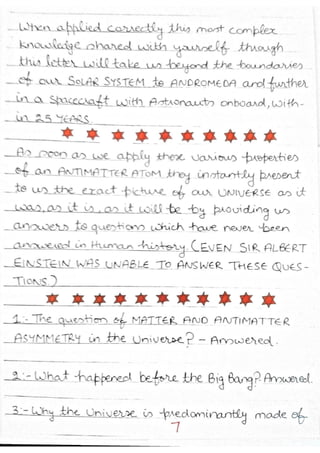 When applied correctly this most complex
knowledge shared with yourself through
this letter will take us beyond the boundaries
of our SOLAR SYSTEM to ANDROMEDA and further
in a Spacecraft with Astronauts onboard, with-
in 25 YEARS.
As soon as we apply these various properties
of an ANTIMATTER ATOM they instantly present
to us the exact picture of our UNIVERSE as it
was, as it is, as it will be by providing us
answers to questions which have never been
answered in Human history. (EVEN SIR ALBERT
EINSTEIN WAS UNABLE TO ANSWER THESE QUES-
TIONS.)
1:- The question of MATTER AND ANTIMATTER
ASYMMETRY in the Universe? - Answered.
2:- What happened before the Big Bang? Answered.
3:- Why the Universe is predominantly made of
7